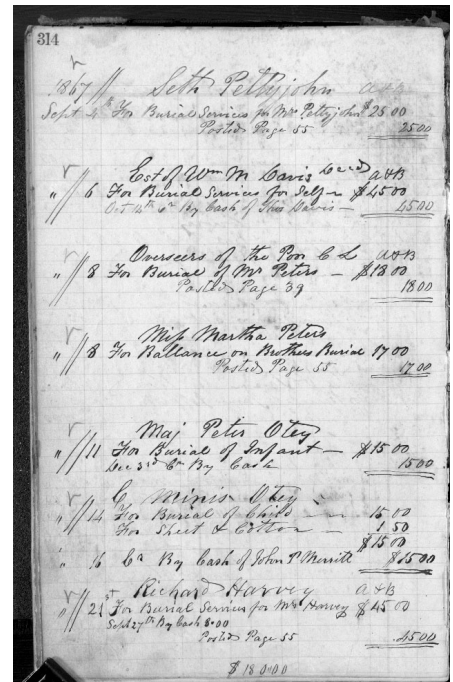 314
1867 // Seth Pettyjohn A&B
Sept 4th For Burial Services for Mrs Pettyjohn $25 00
Posted Page 55 25 00
Est of Wm M Davis Decd A&B
" // 6 For Burial Services for Self — $45 00
Oct 14th Cr By Cash of Davis — 45 00
Overseers of the Poor C L A&B
" // 8 For Burial of Mr Peters — $18 00
Posted Page 39 18 00
Miss Martha Peters
" // 8 For Ballance on Brothers Burial 17 00
Posted Page 55 17 00
Maj Peter Otey
" // 11 For Burial of Infant — $15 00
Dec 3rd Cr By Cash 15 00
C Minis Otey
" // 14 For Burial of Child — 15 00
For Sheet & Cotton — 1 50
$15 00
" 16 Cr By Cash of John P Merritt $15 00
Richard Harvey A&B
" // 21st For Burial Services for Mrs Harvey $45 00
Sept 27th By Cash 5.00
Posted Page 55 45 00
$180.00